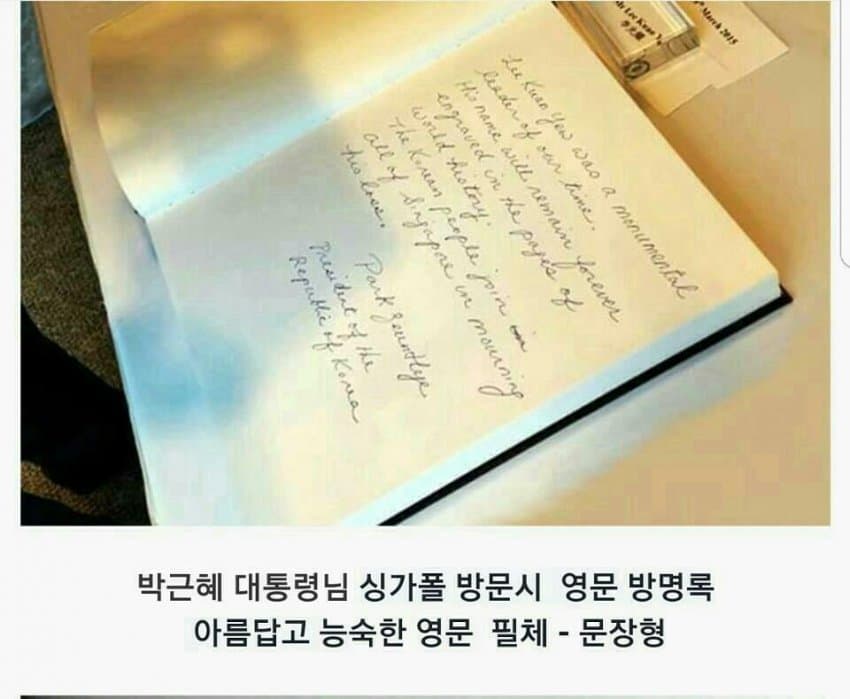 Lee Kuan Y
March 2015
Lee Kuan Yew was a monumental
leader of our time.
His name will remain forever
engraved in the pages of
world history.
The Korean people join in
all of Singapore in mourning
his loss.
Park Geunhye
President of the
Republic of Korea
박근혜 대통령님 싱가폴 방문시 영문 방명록
아름답고 능숙한 영문 필체 - 문장형